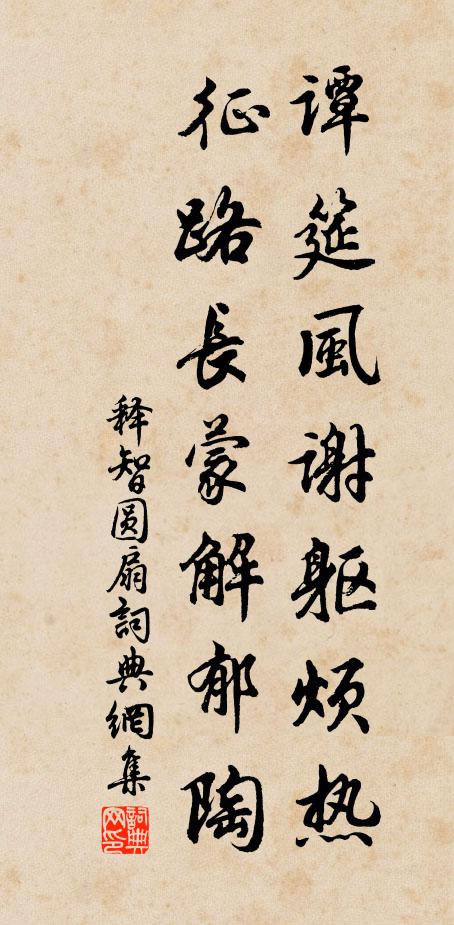 谭筵風谢躯烦热
征路長蒙解郁陶
释智圆扇詞典網集
詞典
网印